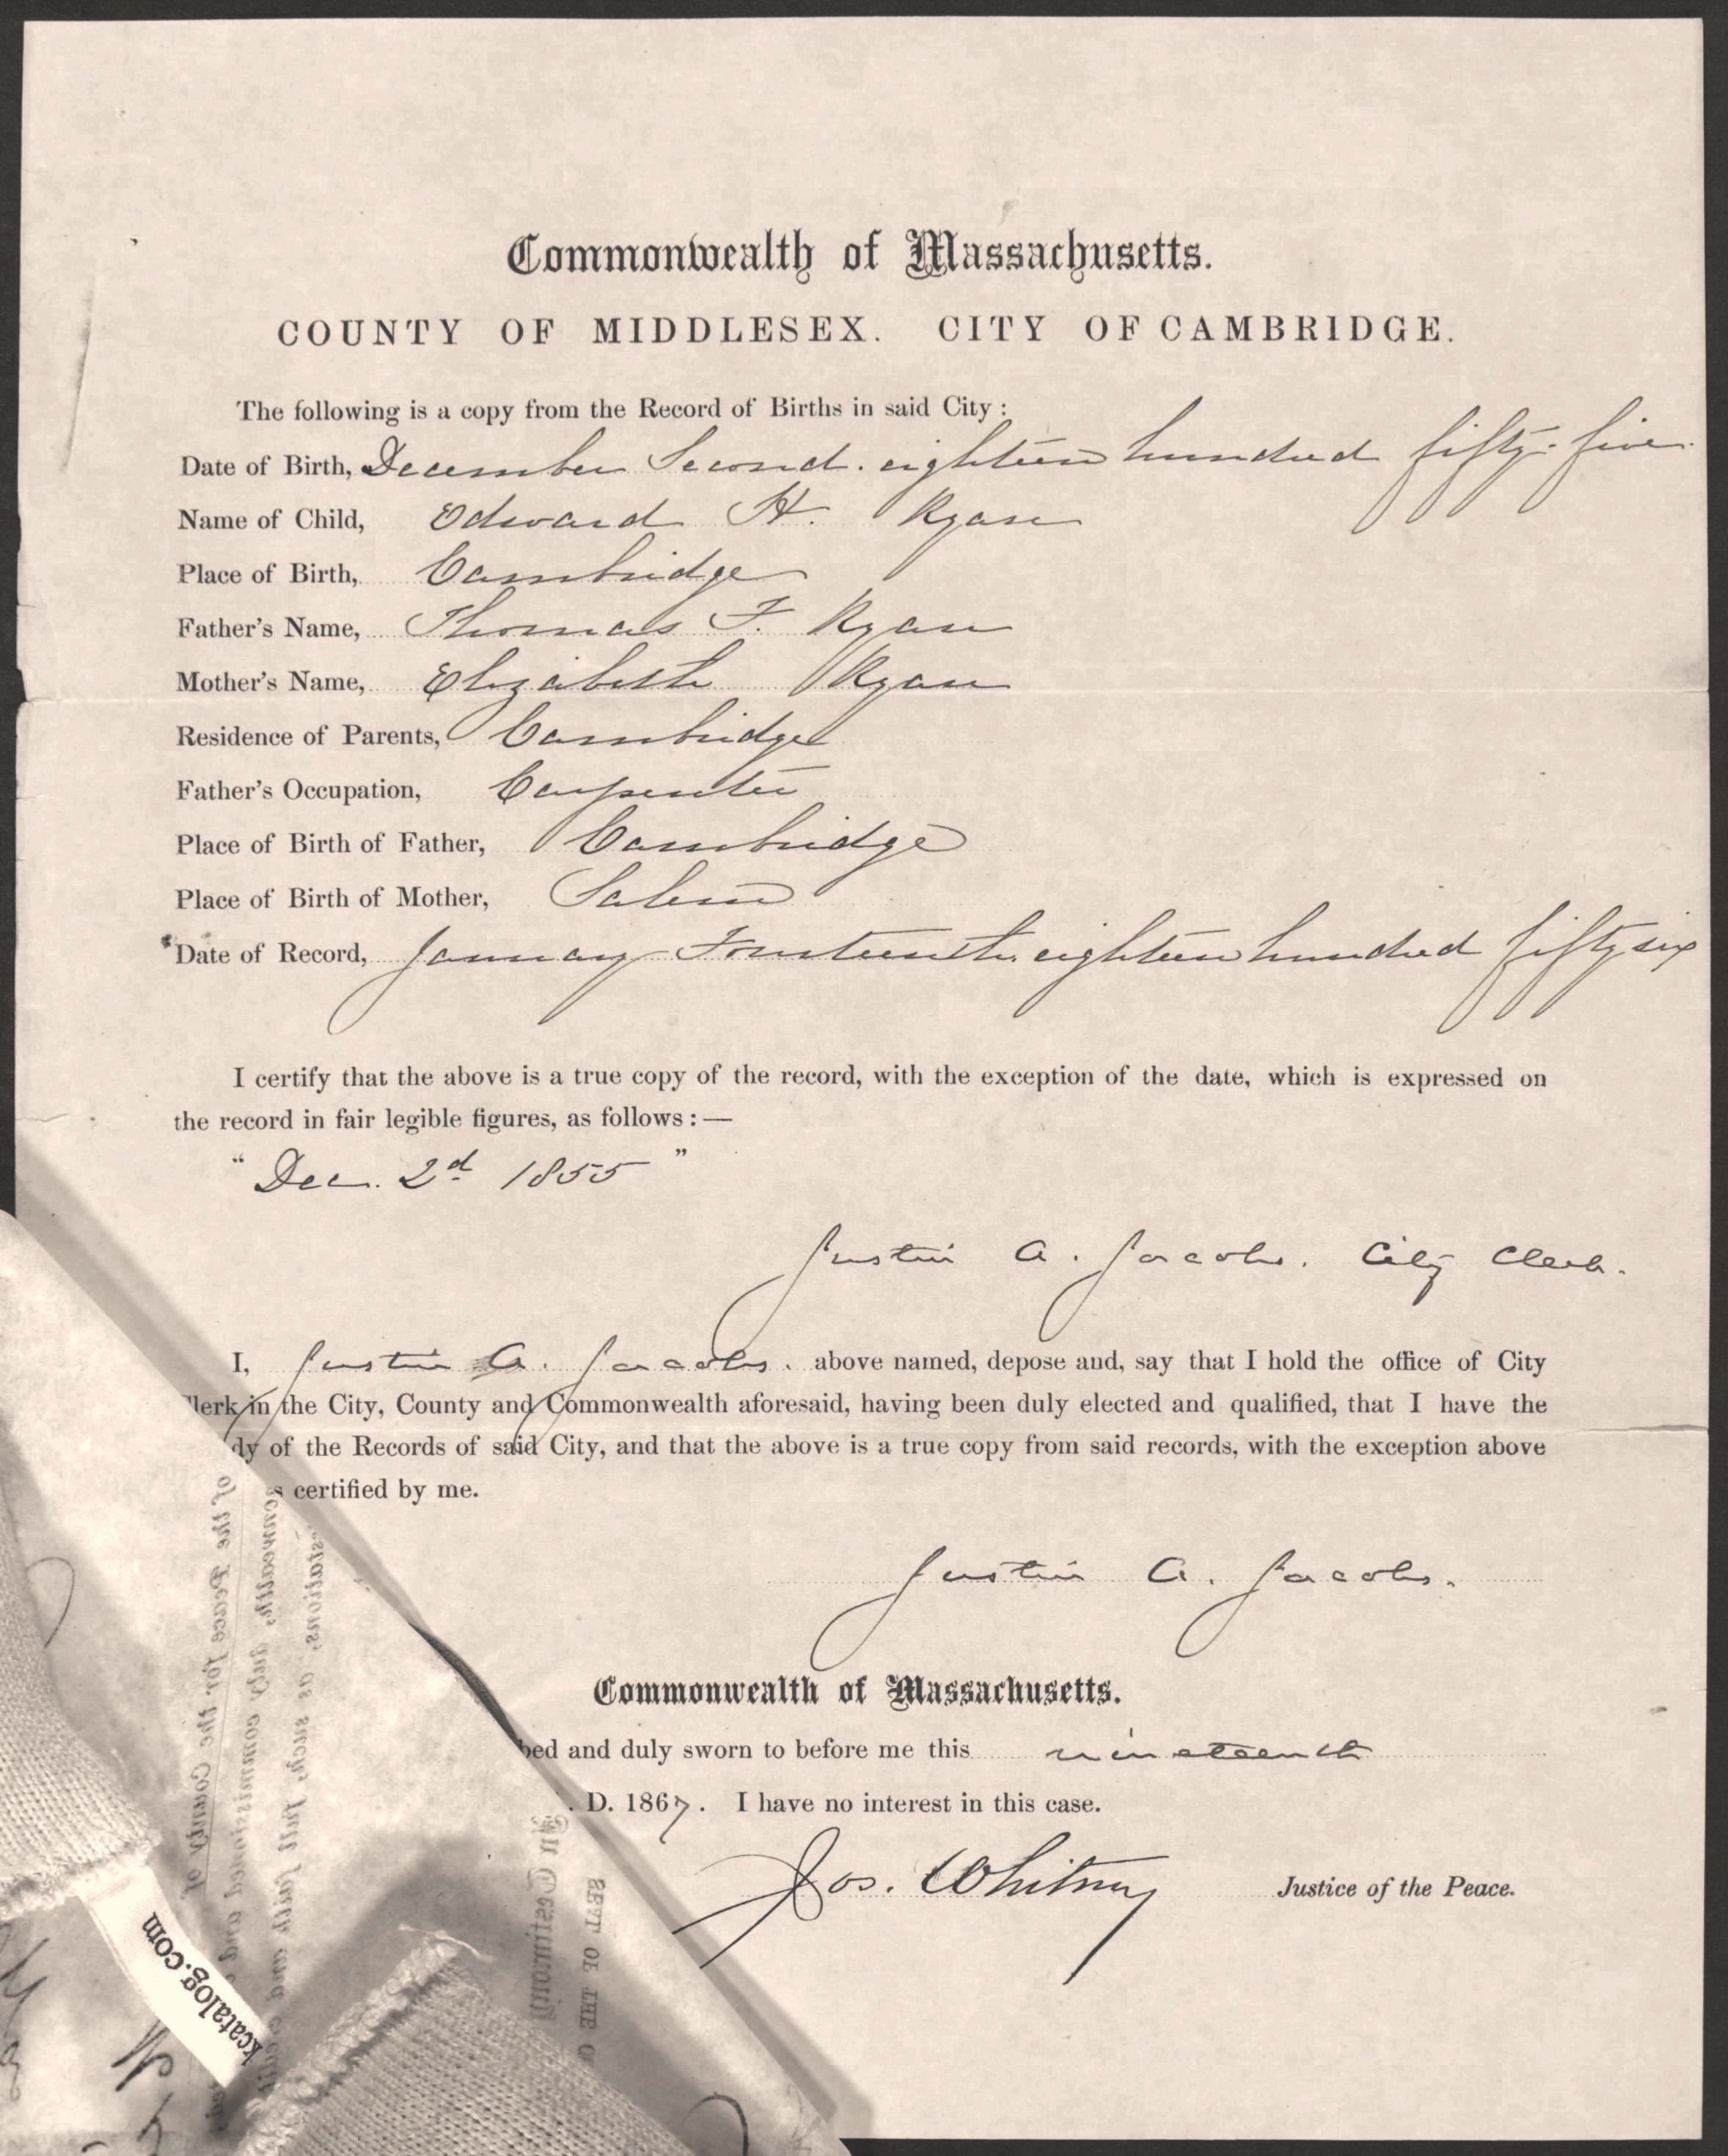 Commonwealth of Massachusetts.
COUNTY OF MIDDLESEX. CITY OF CAMBRIDGE.
The following is a copy from the Record of Births in said City :
Date of Birth, December Second. eighteen hundred fifty-five.
Name of Child, Edward H. Ryan
Place of Birth, Cambridge
Father's Name, Thomas F. Ryan
Mother's Name, Elizabeth Ryan
Residence of Parents, Cambridge
Father's Occupation, Carpenter
Place of Birth of Father, Cambridge
Place of Birth of Mother, Salem
Date of Record, January Fourteenth. eighteen hundred fifty six
I certify that the above is a true copy of the record, with the exception of the date, which is expressed on
the record in fair legible figures, as follows : —
" Dec. 2d 1855 "
Justin A. Jacobs. City Clerk.
I, Justin A. Jacobs. above named, depose and, say that I hold the office of City
Clerk in the City, County and Commonwealth aforesaid, having been duly elected and qualified, that I have the
dy of the Records of said City, and that the above is a true copy from said records, with the exception above
s certified by me.
Justin A. Jacobs.
Commonwealth of Massachusetts.
bed and duly sworn to before me this nineteenth
. D. 1867. I have no interest in this case.
Jos. Whitney Justice of the Peace.
of the Peace for the County of
onwealth, duly commissioned and
stations, as such, full faith and
In Testimony
SEAL OF THE
kcatalog.com